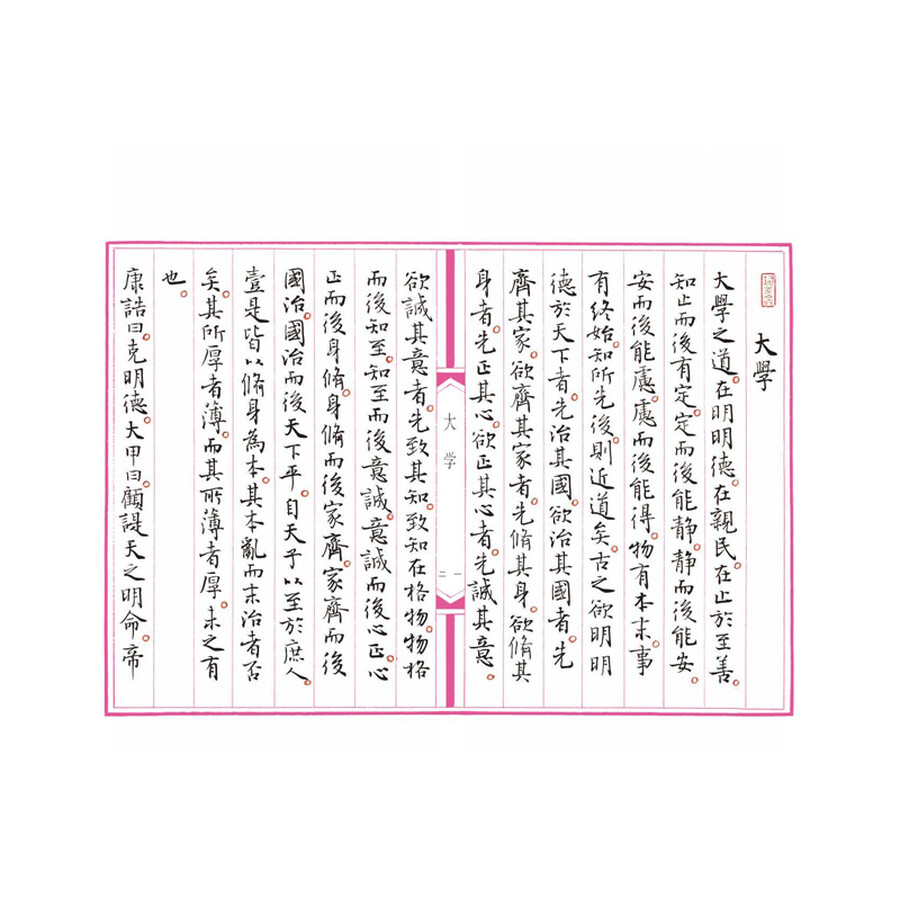 大學
大學之道。在明明德。在親民。在止於至善。
知止而後有定。定而後能静。静而後能安。
安而後能慮。慮而後能得。物有本末。事
有终始。知所先後。則近道矣。古之欲明明
德於天下者。先治其國。欲治其國者。先
齊其家。欲齊其家者。先脩其身。欲脩其
身者。先正其心。欲正其心者。先誠其意。
大学
一
二
欲誠其意者。先致其知。致知在格物。物格
而後知至。知至而後意誠。意誠而後心正。心
正而後身脩。身脩而後家齊。家齊而後
國治。國治而後天下平。自天子以至於庶人。
壹是皆以脩身為本。其本亂而末治者否
矣。其所厚者薄。而其所薄者厚。未之有
也。
康誥曰。克明德。大甲曰。顧諟天之明命。帝